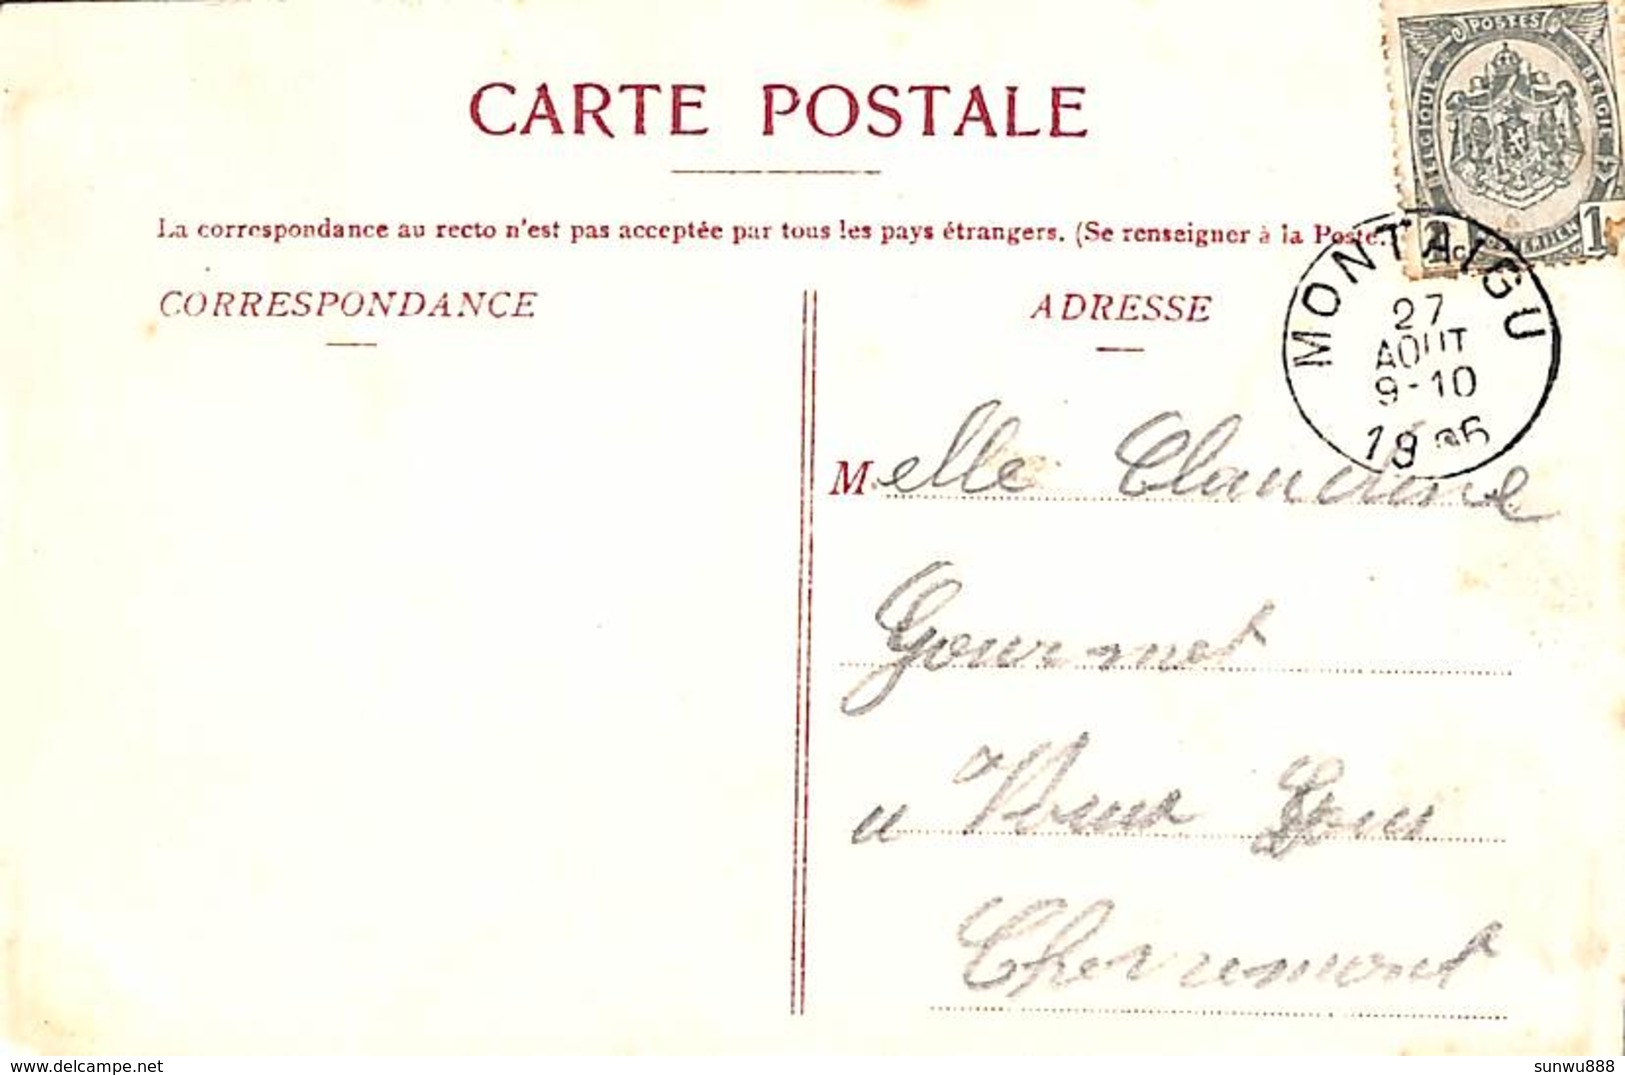 POSTES
BELGIQUE BELGIE
1
CARTE POSTALE
La correspondance au recto n'est pas acceptée par tous les pays étrangers. (Se renseigner à la Poste.)
MONTAIGU
27
AOUT
9-10
CORRESPONDANCE
ADRESSE
Melle Claudine
Gourmet
a Vaux Sous
Chevremont
www.delcampe.net
sunwu888